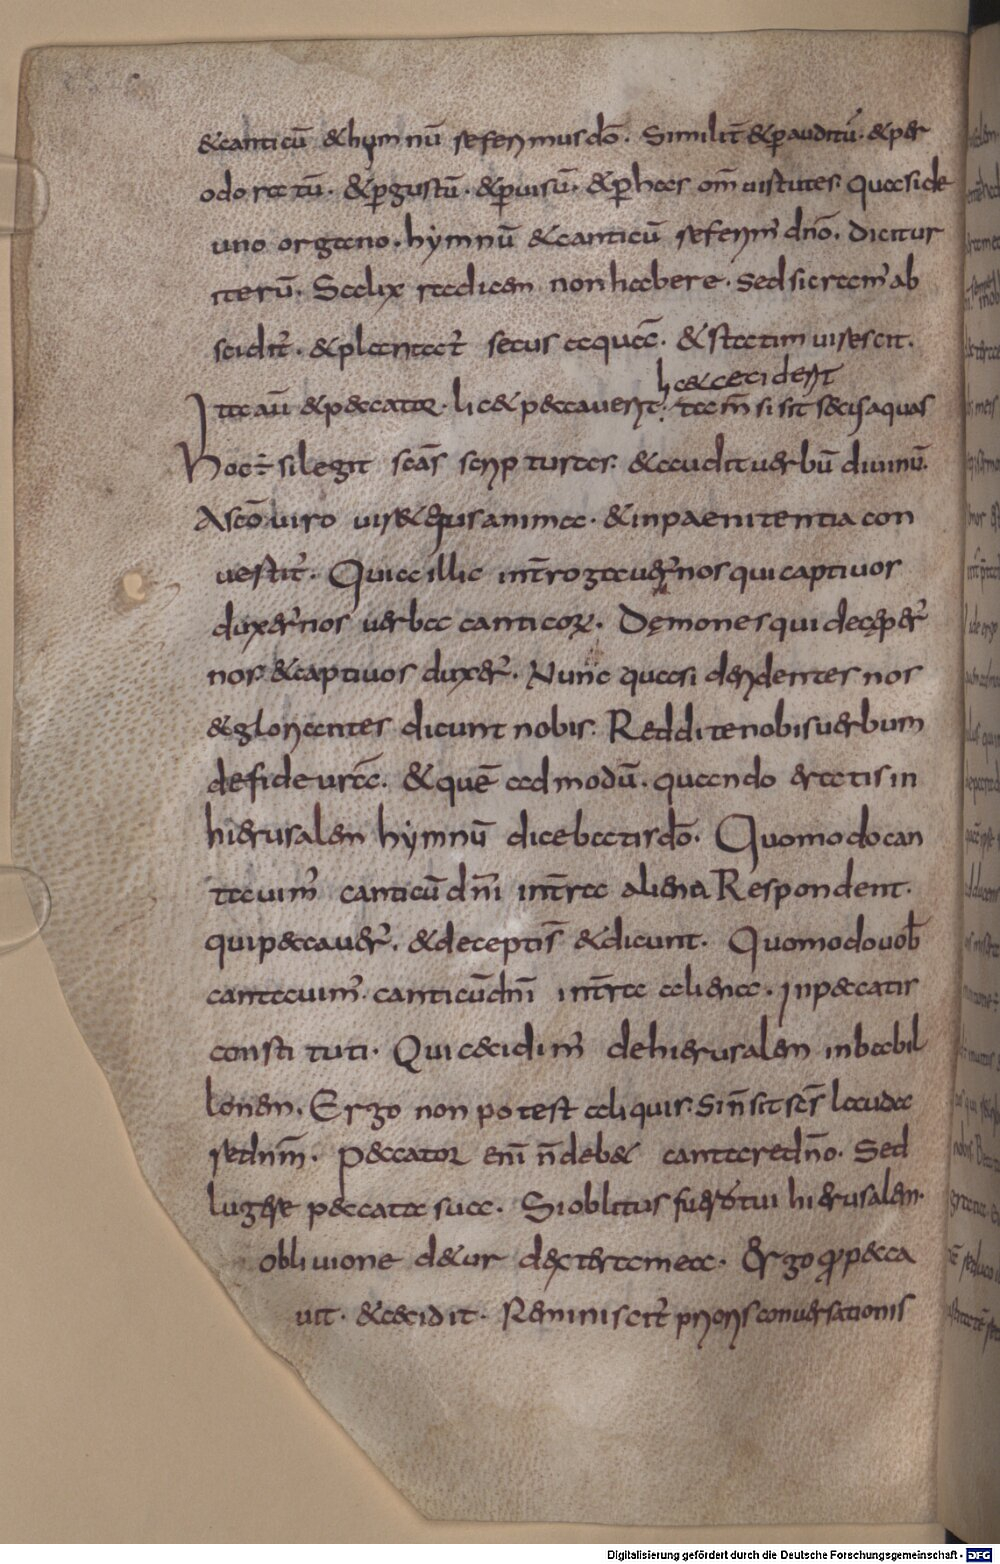 &canticū &hymnū referimus dō. Similit̄ &p̱auditū. &per
odoratū. &p̱gustū. &p̱uisū. &p̱has om̄ uirtutes. Quasi de
uno organo. hymnū &canticū referim̄ dn̄o. Dicitur
iterū. Salix radicem non habere. sed si ram̄ ab
scidit̄. &plantat̄ secus aquā. &statim uirescit.
lic& ceciderit
Ita aū &peccator. lic& peccauerit. tam̄ si sit secus aquas
Hoc ÷ si legit scās scripturas. &audit uerbū diuinū.
A scō uiro uires eius animae. &in paenitentia con
uestit̄. Quia illic intrrogauer̄ nos qui captiuos
duxer̄ nos uerba canticoꝝ. Dęmones qui decęper̄
nos &captiuos duxer̄. Nunc quasi deridentes nos
&gloriantes dicunt nobis. Reddite nobis uerbum
de fide urā. &quē admodū. quando eratis in
hierusalem hymnū dicebatis dō. Quomodo can
tauim̄ canticū dn̄i int̄ra aliena Respondent.
qui peccauer̄. &deceptis̄ &dicunt. Quomodo uob̄
cantauim̄. canticū dn̄i int̄ra aliena. In peccatis
constituti. Qui cecidim̄ de hierusalem in babil
lonem. Ergo non potest aliquis. si n̄ sit scs̄ lauda
re dnm̄. Peccator enī n̄ deb& cantare dn̄o. Sed
lugere peccata sua. Si oblitus fuero tui hierusalem.
obliuione detur dextera mea. Ergo qui pecca
uit. &cecidit. Reminiscit̄ prioris conuersationis
Digitalisierung gefördert durch die Deutsche Forschungsgemeinschaft - DFG